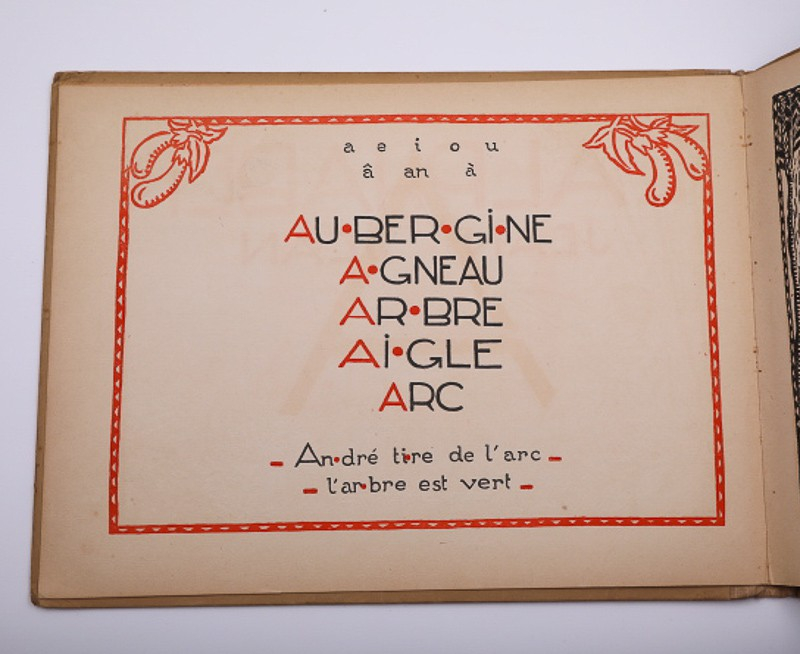 a e i o u
â an à
AU•BER•Gi•NE
A•GNEAU
AR•BRE
Ai•GLE
ARC
– An•dré ti•re de l'arc –
– l'ar•bre est vert –